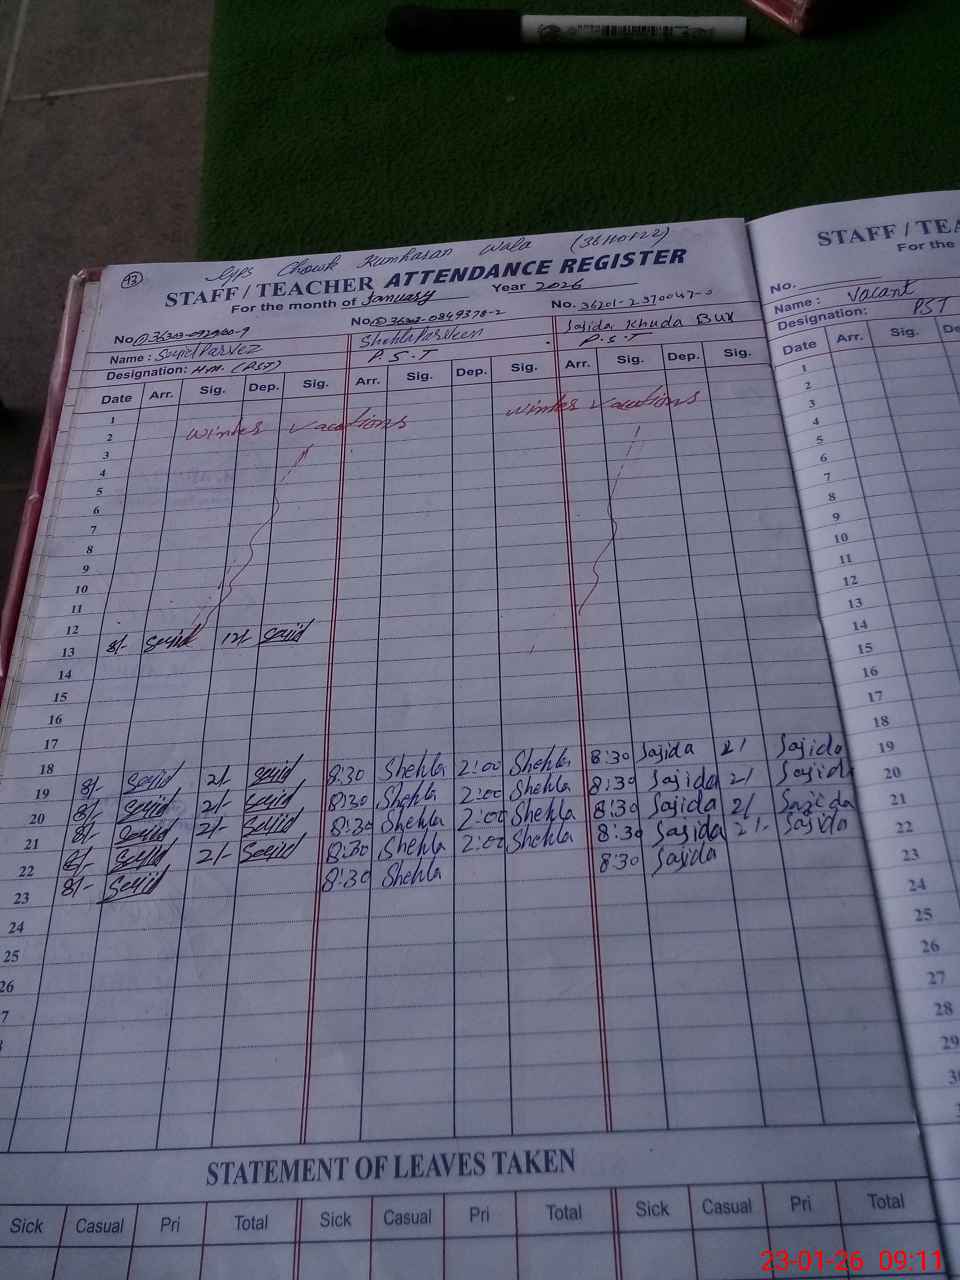 93
Gps Chowk Kumharan Wala (36110122)
STAFF / TEACHER ATTENDANCE REGISTER
For the month of January Year 2026
No.
Name : Sajid Parvez
Designation: H.M. (PST)
No.
Shehla Parveen
P. S. T
No.
Sajida Khuda Bux
P. S. T
Date Arr. Sig. Dep. Sig. Arr. Sig. Dep. Sig. Arr. Sig. Dep. Sig.
1
2 Winter Vacations Winter Vacations
3
4
5
6
7
8
9
10
11
12
13 8/- Sajid 12/- Sajid
14
15
16
17
18
19 8/- Sajid 2/- Sajid 8:30 Shehla 2:00 Shehla 8:30 Sajida 2/ Sajida
20 8/- Sajid 2/- Sajid 8:30 Shehla 2:00 Shehla 8:30 Sajida 2/ Sajida
21 8/- Sajid 2/- Sajid 8:30 Shehla 2:00 Shehla 8:30 Sajida 2/ Sajida
22 8/- Sajid 2/- Sajid 8:30 Shehla 2:00 Shehla 8:30 Sajida 2/- Sajida
23 8/- Sajid 8:30 Shehla 8:30 Sajida
24
25
26
7
STATEMENT OF LEAVES TAKEN
Sick Casual Pri Total Sick Casual Pri Total Sick Casual Pri Total
STAFF / TEA
For the
No.
Name : Vacant
Designation: PST
Date Arr. Sig.
1
2
3
4
5
6
7
8
9
10
11
12
13
14
15
16
17
18
19
20
21
22
23
24
25
26
27
28
29
23-01-26 09:11